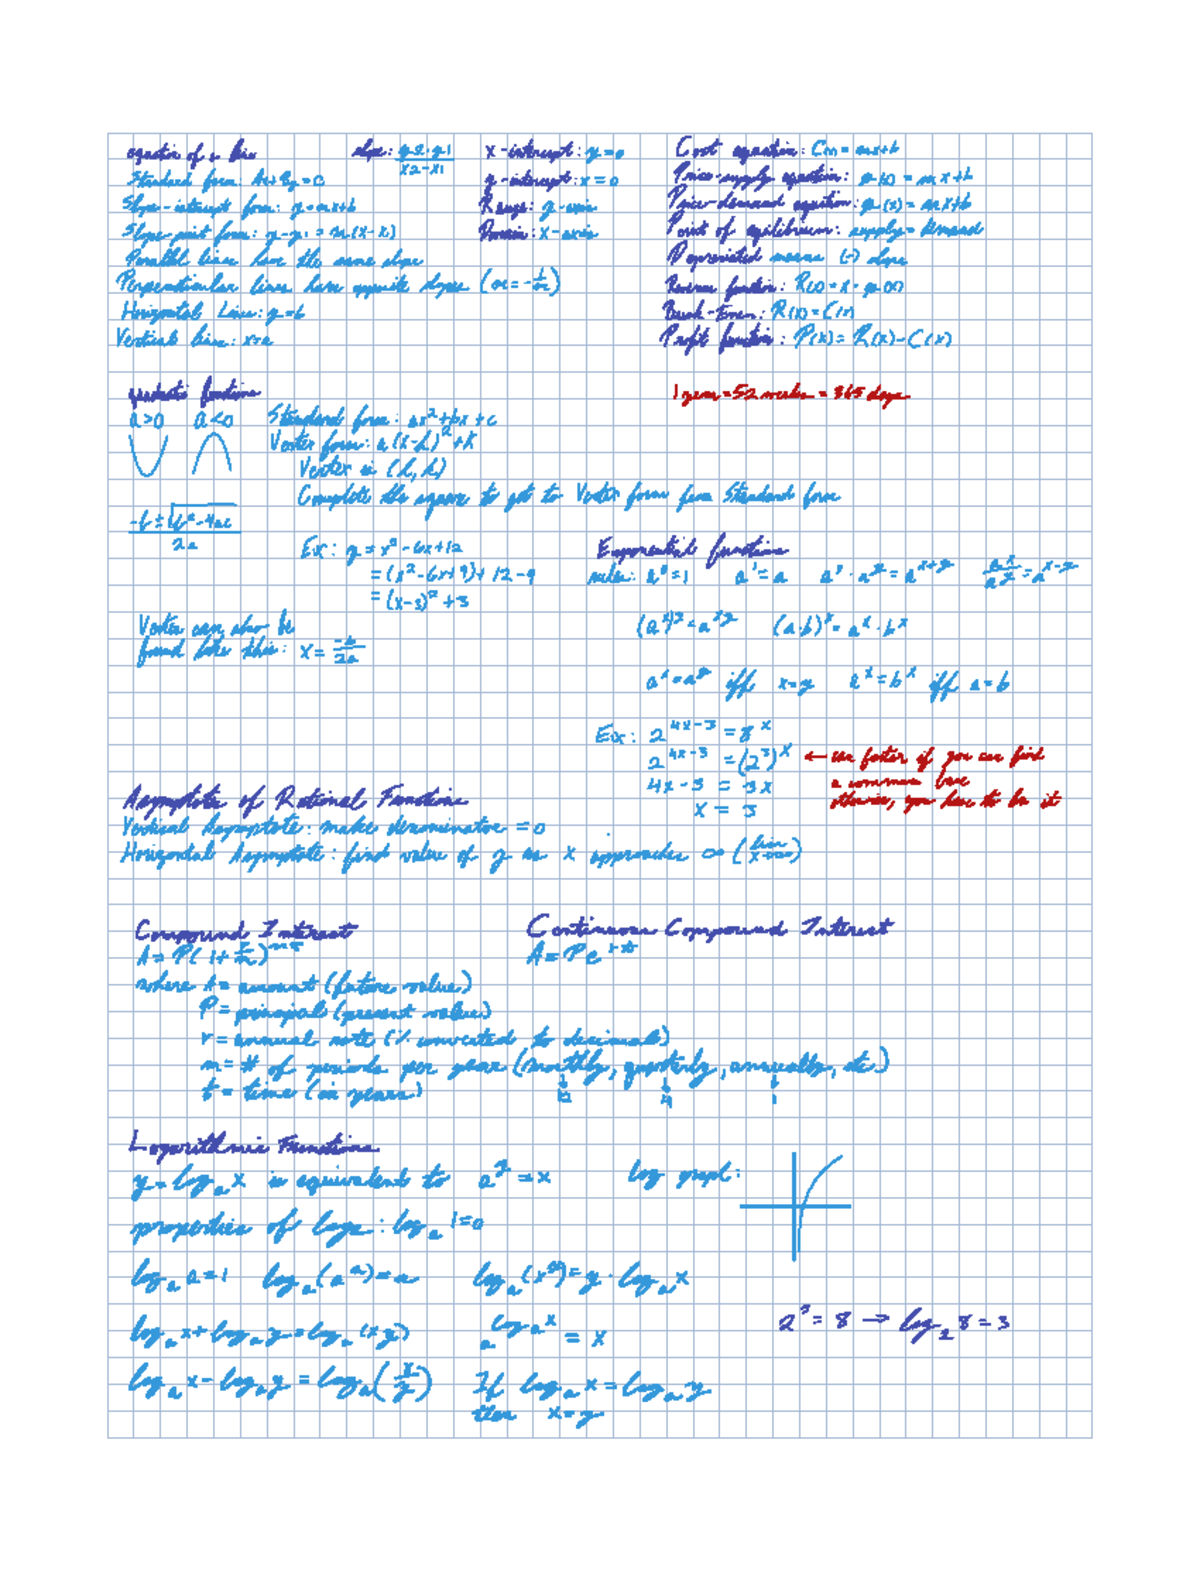 equation of a line
Standard form: Ax+By=C
Slope-intercept form: y=mx+b
Slope-point form: y-y₁=m(x-x₁)
Parallel lines have the same slope
Perpendicular lines have opposite slopes (m=-1/m)
Horizontal Line: y=b
Vertical line: x=a
slope: y2-y1/x2-x1
x-intercept: y=0
y-intercept: x=0
Range: y-axis
Domain: x-axis
Cost equation: C(x)=mx+b
Price-supply equation: p(x)=mx+b
Price-demand equation: p(x)=mx+b
Point of equilibrium: supply=demand
Depreciated means (-) slope
Revenue function: R(x)=x·p(x)
Break-Even: R(x)=C(x)
Profit function: P(x)=R(x)-C(x)
1 year=52 weeks=365 days
quadratic functions
a>0 a<0
Standard form: ax²+bx+c
Vertex form: a(x-h)²+k
Vertex is (h,k)
Complete the square to get to Vertex form from Standard form
-b±√b²-4ac/2a
Ex: y=x²-6x+12
=(x²-6x+9)+12-9
=(x-3)²+3
Vertex can also be
found like this: x=-b/2a
Exponential functions
rules: a⁰=1 a¹=a aˣ·aʸ=aˣ⁺ʸ aˣ/aʸ=aˣ⁻ʸ
(aˣ)ʸ=aˣʸ (a·b)ˣ=aˣ·bˣ
aˣ=aʸ iff x=y aˣ=bˣ iff a=b
Ex: 2⁴ˣ⁻³=8ˣ
2⁴ˣ⁻³=(2³)ˣ ← faster if you can find
a common base
otherwise, you have to ln it
4x-3=3x
x=3
Asymptote of Rational Functions
Vertical Asymptote: make denominator =0
Horizontal Asymptote: find value of y as x approaches ∞ (lim x→∞)
Compound Interest
A=P(1+r/m)ᵐᵗ
where A=amount (future value)
P=principal (present value)
r=annual rate (% converted to decimal)
m=# of periods per year (monthly, quarterly, annually, etc.)
12 4 1
t=time (in years)
Continuous Compound Interest
A=Peʳᵗ
Logarithmic Functions
y=logₐx is equivalent to aʸ=x
log graph:
properties of logs: logₐ1=0
logₐa=1 logₐ(aˣ)=x logₐ(xʸ)=y·logₐx
logₐx+logₐy=logₐ(xy) a^logₐx=x
2³=8→log₂8=3
logₐx-logₐy=logₐ(x/y) If logₐx=logₐy
then x=y